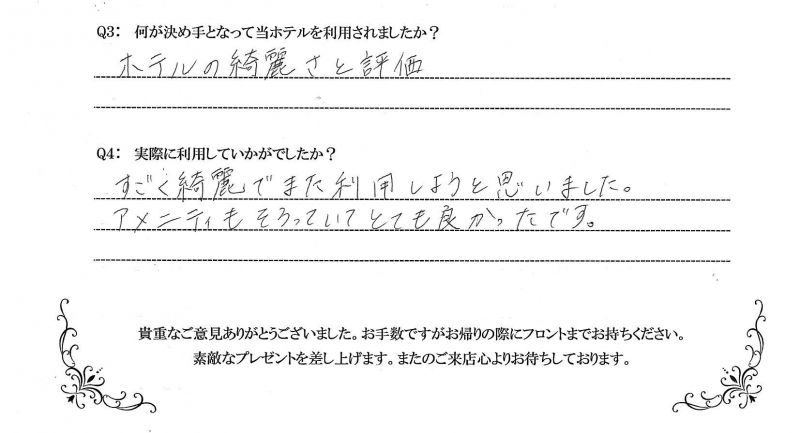 Q3： 何が決め手となって当ホテルを利用されましたか？
ホテルの綺麗さと評価
Q4： 実際に利用していかがでしたか？
すごく綺麗でまた利用しようと思いました。
アメニティもそろっていてとても良かったです。
貴重なご意見ありがとうございました。お手数ですがお帰りの際にフロントまでお持ちください。
素敵なプレゼントを差し上げます。またのご来店心よりお待ちしております。